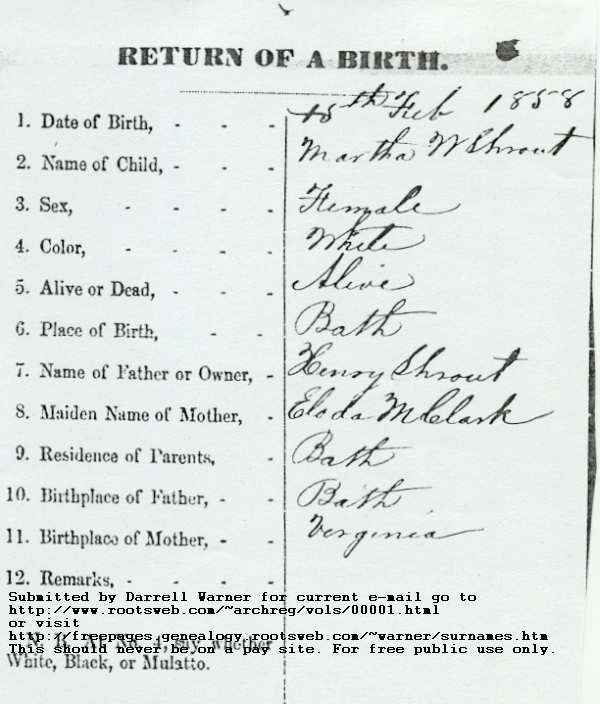 RETURN OF A BIRTH.
1. Date of Birth, - - - 18th Feb 1858
2. Name of Child, - - - Martha W Shrout
3. Sex, - - - - Female
4. Color, - - - - White
5. Alive or Dead, - - - Alive
6. Place of Birth, - - Bath
7. Name of Father or Owner, - Henry Shrout
8. Maiden Name of Mother, - Eloda M Clark
9. Residence of Parents, - Bath
10. Birthplace of Father, - - Bath
11. Birthplace of Mother, - - Virginia
12. Remarks, - - - -
Submitted by Darrell Warner for current e-mail go to
http://www.rootsweb.com/~archreg/vols/00001.html
or visit
http://freepages.genealogy.rootsweb.com/~warner/surnames.htm
N. B. At No. 4, say whether
This should never be on a pay site. For free public use only.
White, Black, or Mulatto.